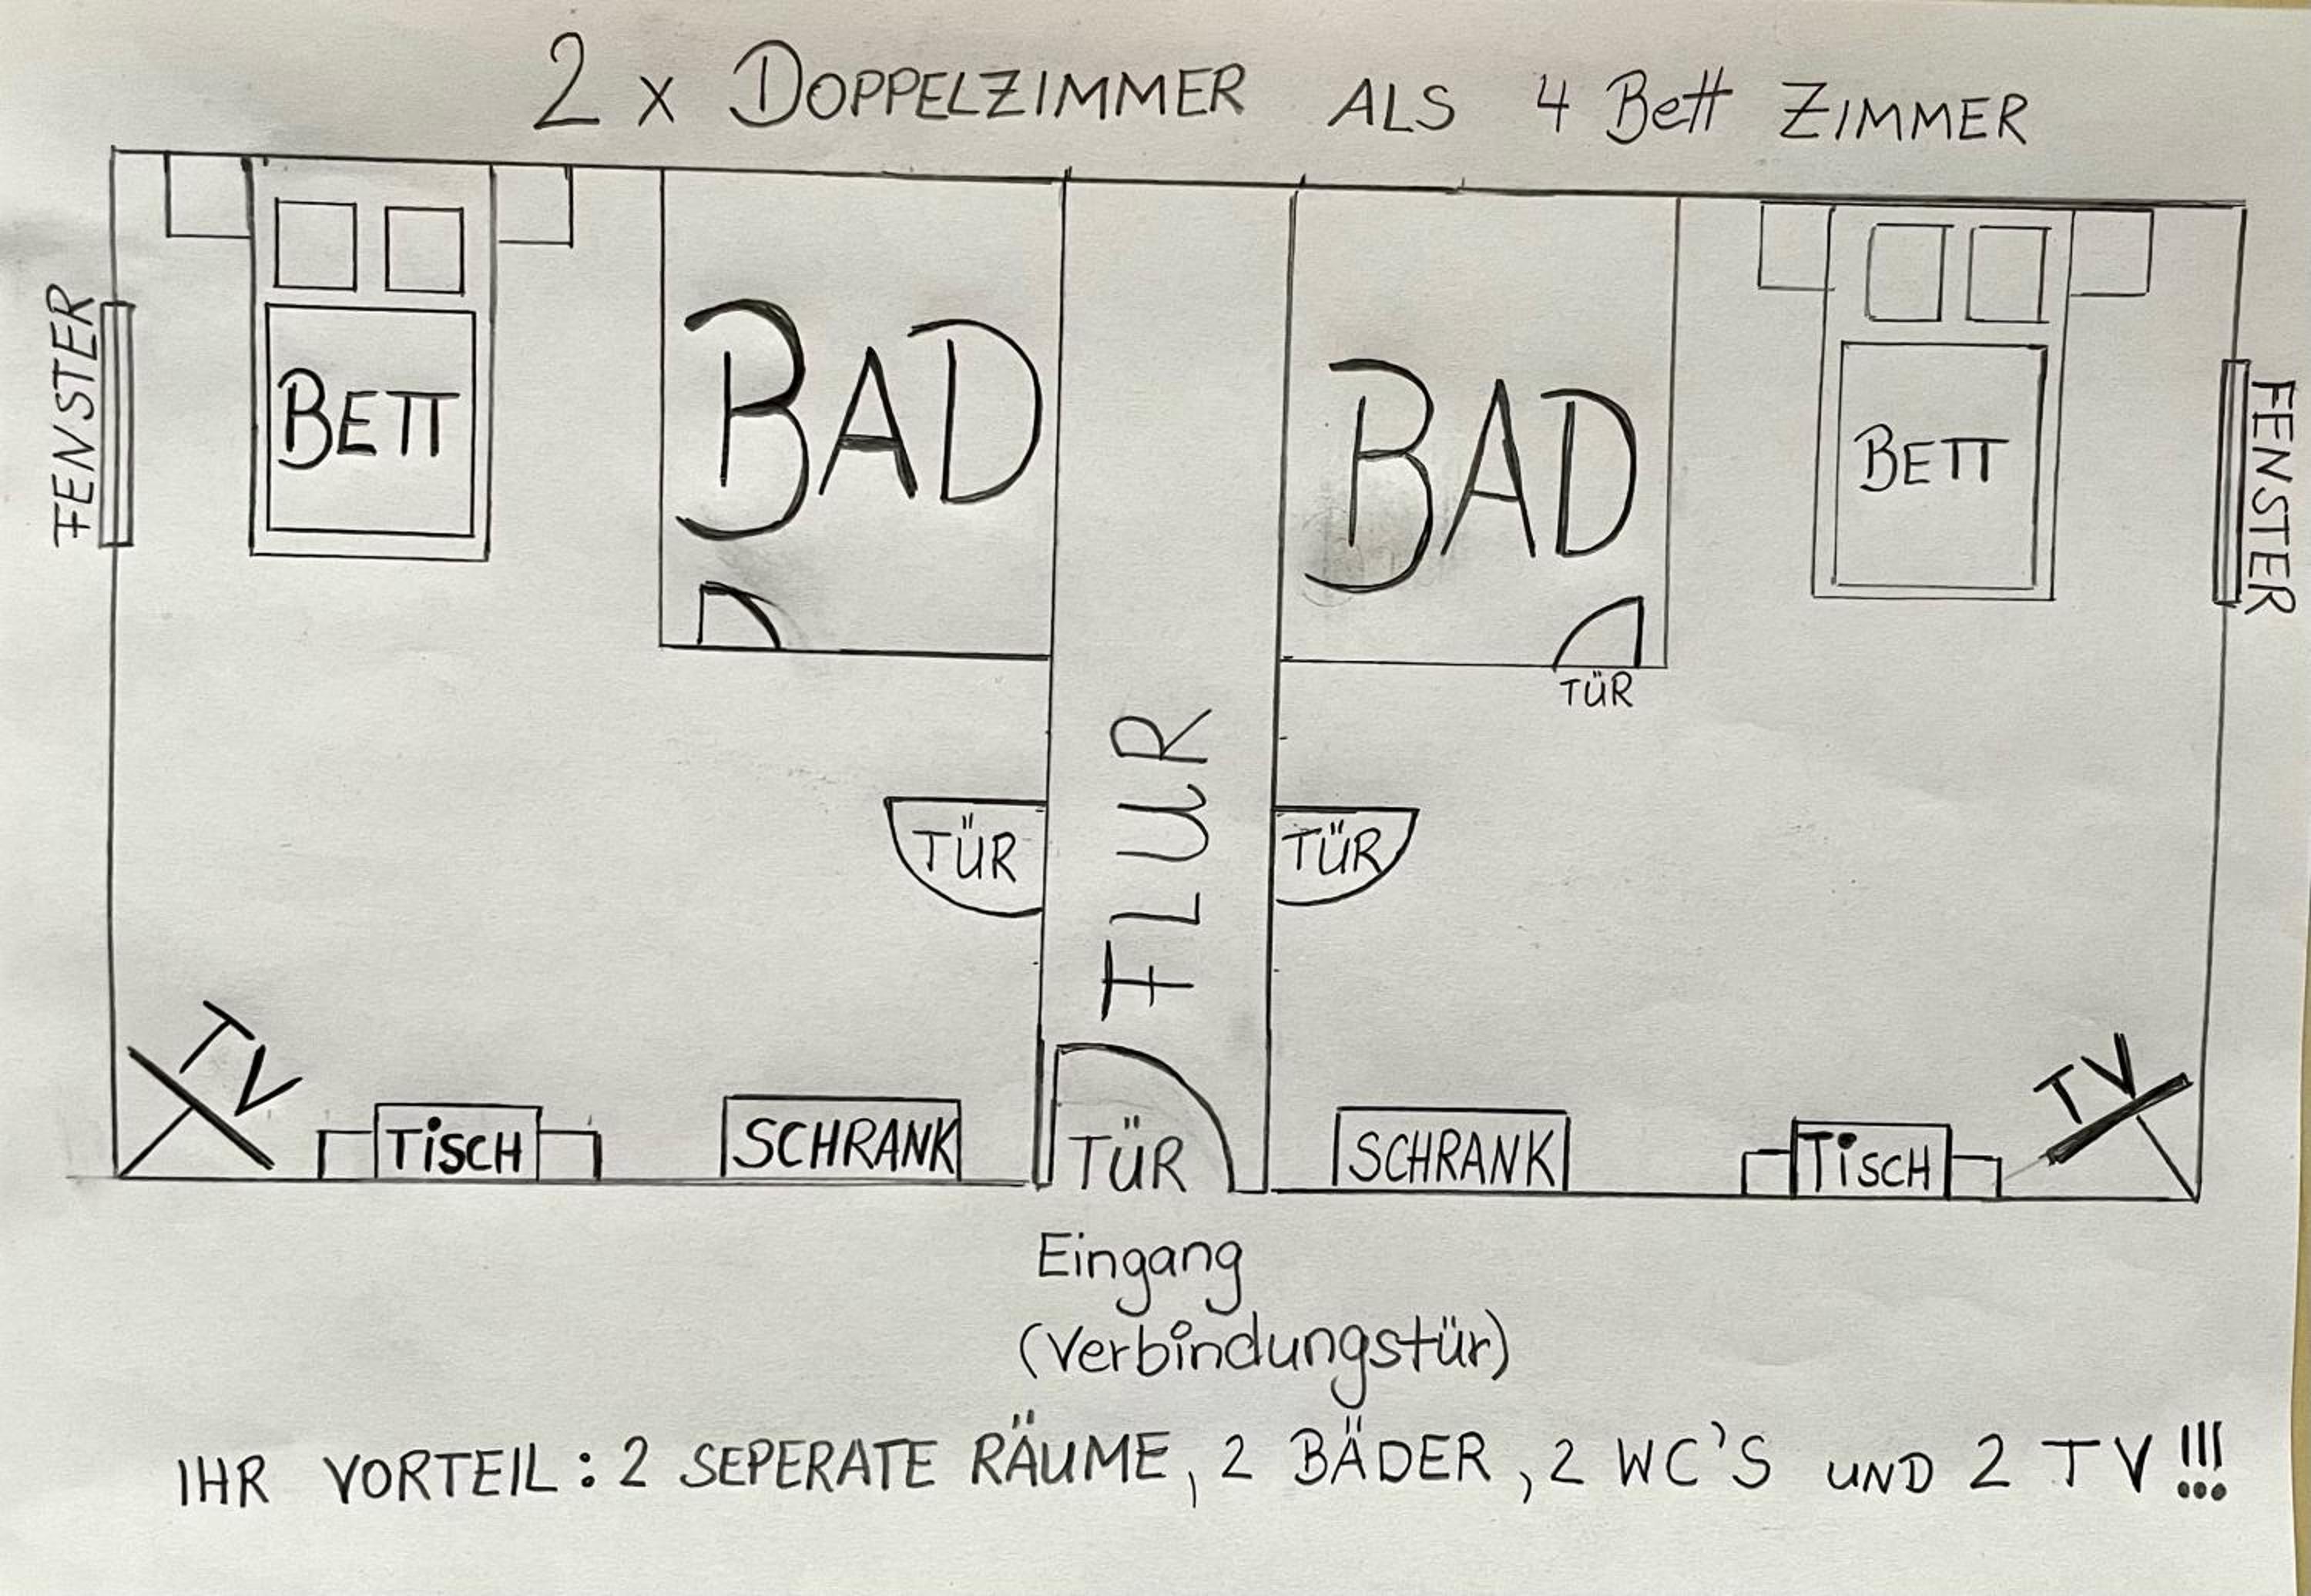 2 x DOPPELZIMMER ALS 4 Bett ZIMMER
FENSTER
BETT
BAD
BAD
BETT
FENSTER
TÜR
FLUR
TÜR
TÜR
TV
TISCH
SCHRANK
TÜR
SCHRANK
TISCH
TV
Eingang
(Verbindungstür)
IHR VORTEIL: 2 SEPERATE RÄUME, 2 BÄDER, 2 WC'S UND 2 TV!!!